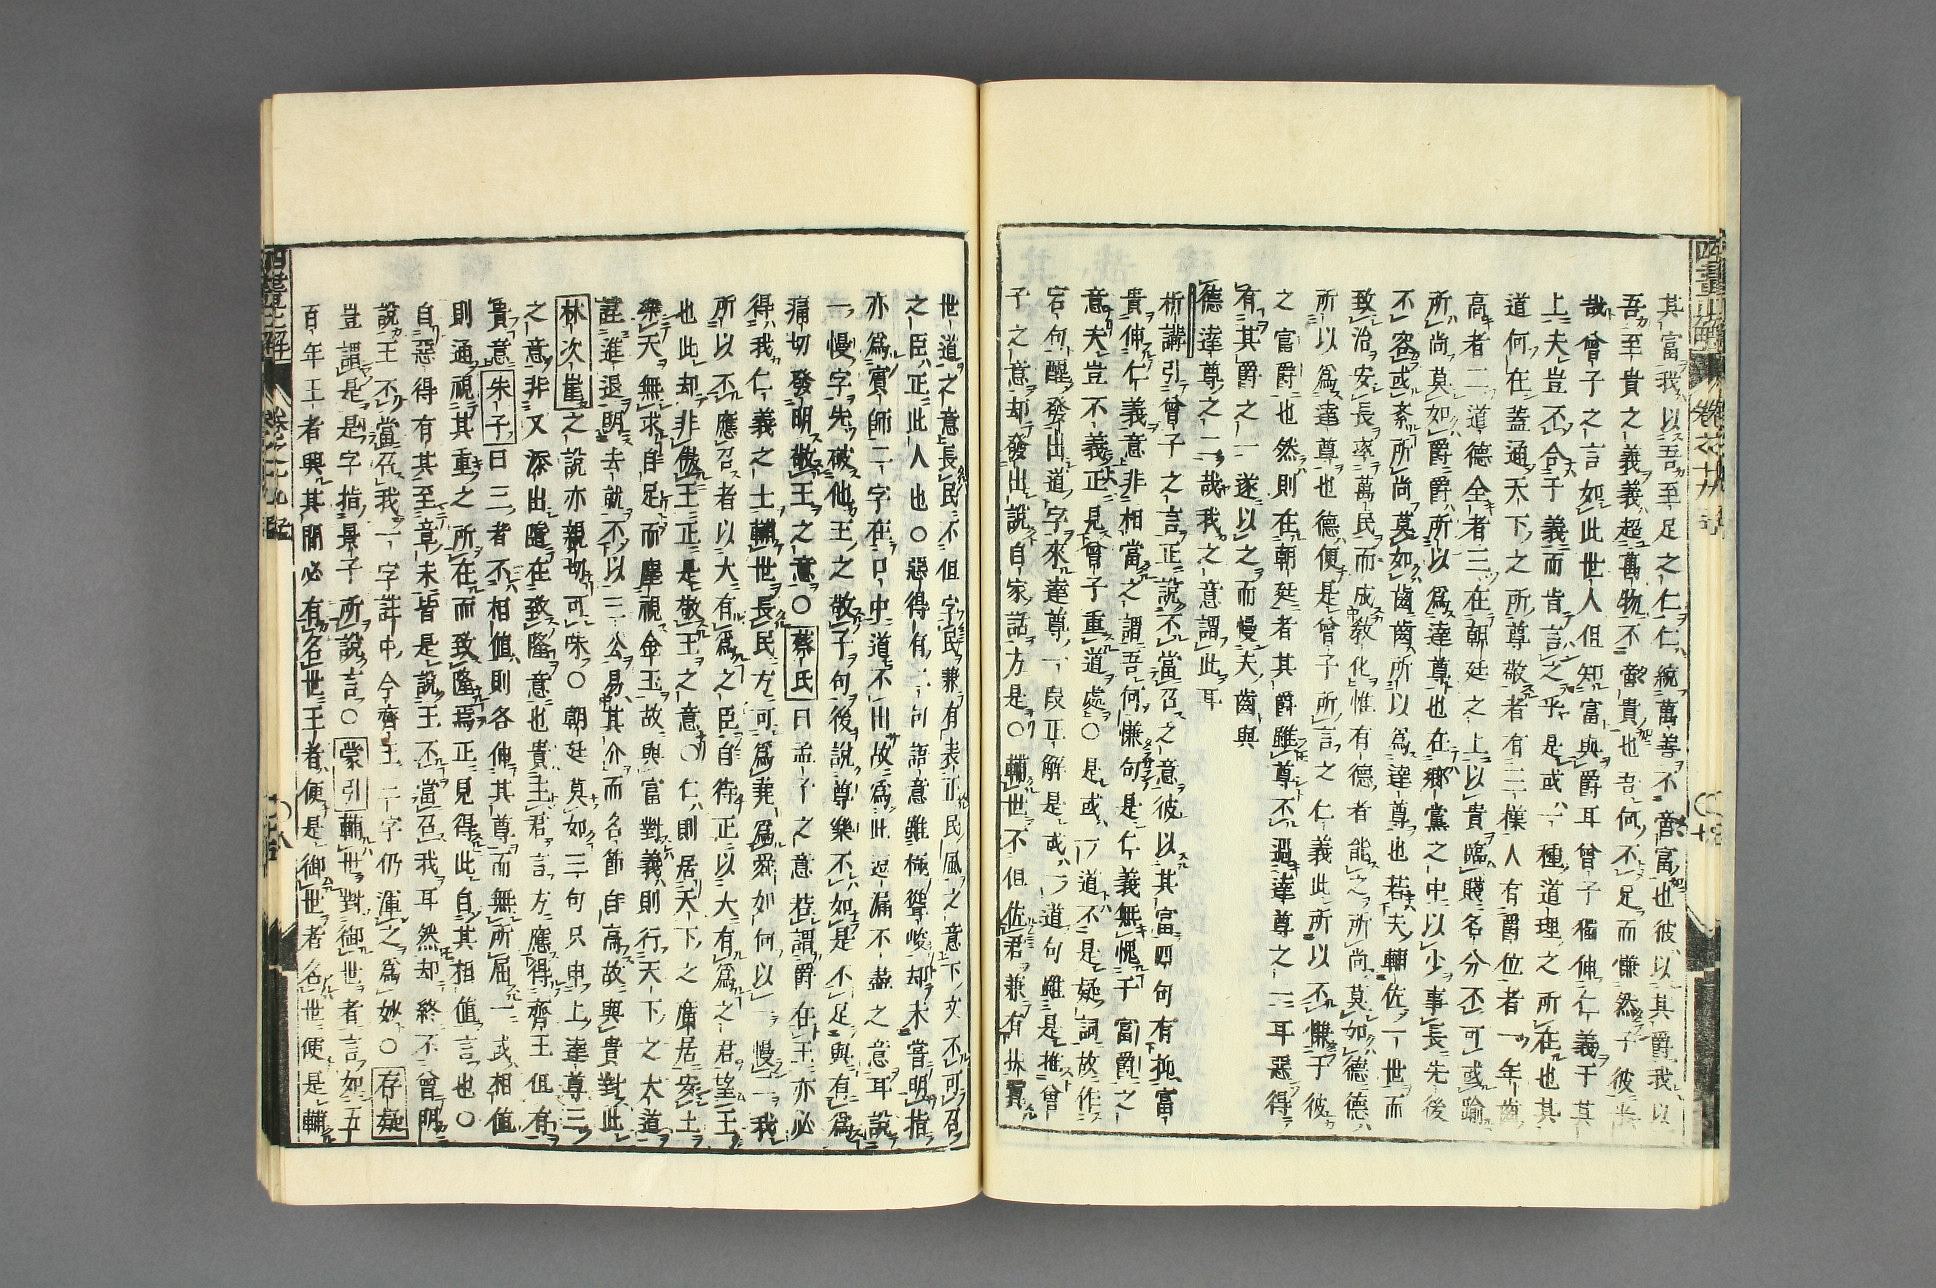 其富我以吾至足之仁仁統萬善不啻富也彼以其爵我以
吾至貴之義義超萬物不啻貴也吾何不足而慊然于彼
哉曾子之言如此世人但知富與爵耳曾子獨伸仁義于其
上夫豈不合于義而肯言之乎是或一種道理之所在也其
道何在蓋通天下之所尊敬者有三僕人有爵位者一年齒
高者二道德全者三在朝廷之上以貴臨賤名分不可或踰
所尚莫如爵爵所以為達尊也在鄉黨之中以少事長先後
不容或紊所尚莫如齒齒所以為達尊也若夫輔佐一世而
致治安長率萬民而成教化惟有德者能之所尚莫如德德
所以為達尊也德便是曾子所言之仁義此所以不慊于彼
之富爵也然則在朝廷者其爵雖尊不過達尊之一耳惡得
有其爵之一遂以之而慢夫齒與
德達尊之二哉我之意謂此耳
析講引曾子之言正說不當召之意彼以其富四句有抑富
貴伸仁義意非相當之謂吾何慊句是仁義無愧于富爵之
意夫豈不義正見曾子重道處○是或一道不是疑詞故作
宕句醒發出道字來達尊一段正解是或一道句雖是推曾
子之意却發出說自家話方是○輔世不但佐君兼有扶
世道之意長民不但字民兼有表正民風之意下文不可召
之臣正此人也○惡得有一句語意雖極聳峻却未嘗明指
亦為賓師二字在口中道不出故為此逗漏不盡之意耳說
一慢字先破他王之敬子句後說尊樂不如是不足與有為
痛切發明敬王之意○蔡氏曰孟子之意若謂爵在王亦必
得我仁義之士輔世長民方可為堯為舜如何以一慢一我
所以不應召者以大有為之臣自待正以大有為之君望王
也此却非傲王正是敬王之意○仁則居天下之廣居安土
樂天無求自足而塵視金玉故與富對義則行天下之大道
謹進退明去就不以三公易其介而名節自高故與貴對此
林次崖之說亦親切可味○朝廷莫如三句只申上達尊三
之意非又添出隆在致隆意也貴主君言方應得齊王但有
貴意朱子曰三者不相值則各伸其尊而無所屈一或相值
則通視其重之所在而致隆焉正見得此自其相值言也○
自惡得有其至章末皆是說王不當召我耳然却終不曾明
說王不當召我一字註中今齊王二字仍渾之為妙○存疑
豈謂是是字指景子所說言○蒙引輔世對御世者言如五
百年王者興其間必有名世王者便是御世者名世便是輔